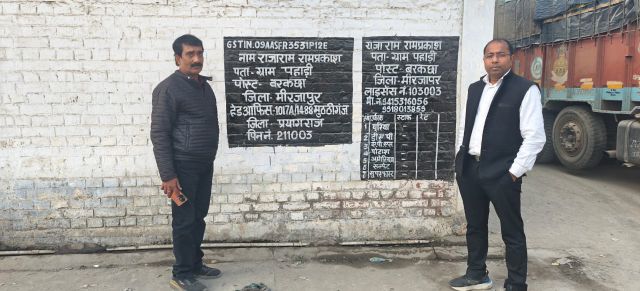 GSTIN.09AASFR3531P1ZE
नाम राजाराम रामप्रकाश
पता-ग्राम पहाड़ी
पोस्ट-बरकछा
जिला-मीरजापुर
हेड ऑफिस-1017A/1488 मुठ्ठीगंज
जिला-प्रयागराज
पिन नं. 211003
राजा राम रामप्रकाश
पता-ग्राम पहाड़ी
पोस्ट-बरकछा
जिला-मीरजापुर
लाइसेंस नं. 103003
मो.नं.9415316056
9918013859
स्टाक रेट
1 यूरिया
2 डी.ए.पी